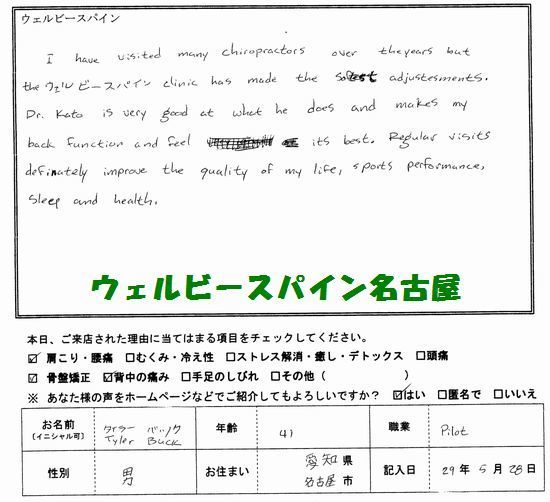 ウェルビースパイン
I have visited many chiropractors over the years but
the ウェルビースパイン clinic has made the softest adjustesments.
Dr. Kato is very good at what he does and makes my
back function and feel its best. Regular visits
definately improve the quality of my life, sports performance,
sleep and health.
ウェルビースパイン名古屋
本日、ご来店された理由に当てはまる項目をチェックしてください。
☑肩こり・腰痛 □むくみ・冷え性 □ストレス解消・癒し・デトックス □頭痛
☑骨盤矯正 ☑背中の痛み □手足のしびれ □その他( )
※ あなた様の声をホームページなどでご紹介してもよろしいですか? ☑はい □匿名で □いいえ
お名前 [イニシャル可] タイラー バック Tyler Buck 年齢 41 職業 Pilot
性別 男 お住まい 愛知県 名古屋市 記入日 29年5月28日